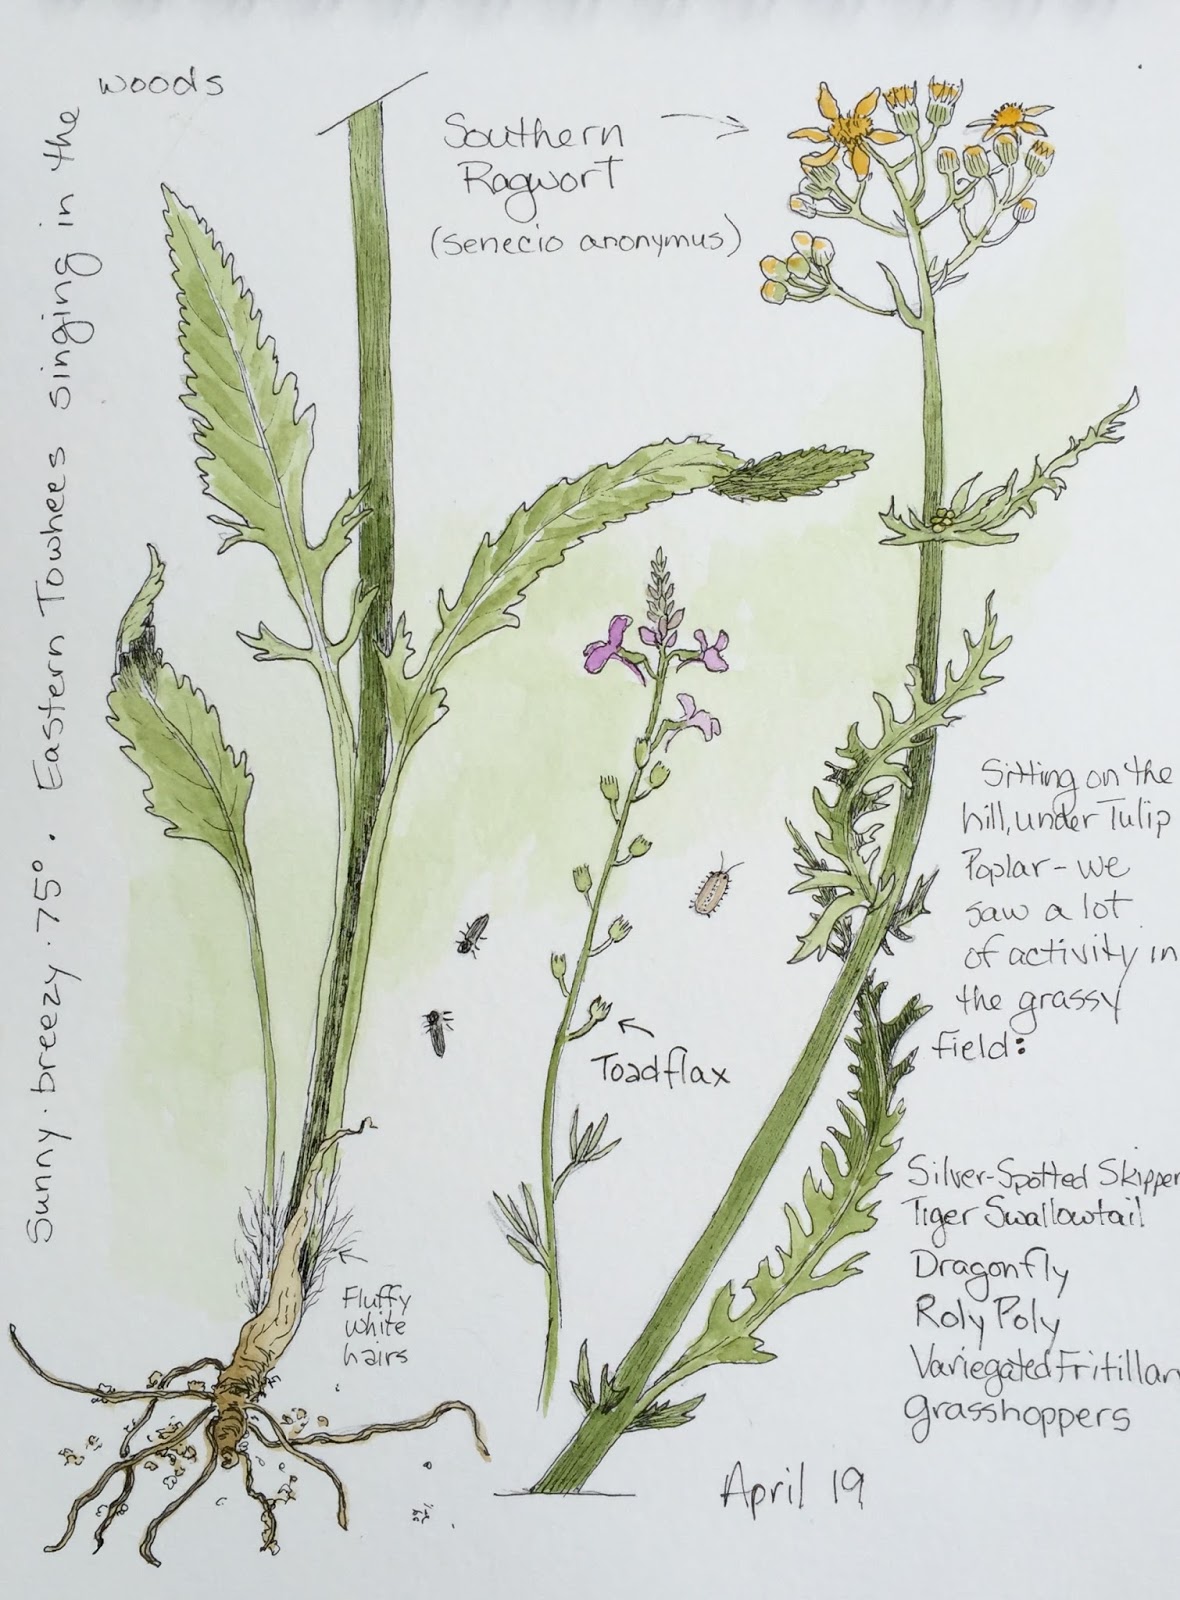 Sunny · breezy · 75° · Eastern Towhees singing in the
woods
Southern
Ragwort
(senecio anonymus)
Sitting on the
hill, under Tulip
Poplar - we
saw a lot
of activity in
the grassy
field:
Toadflax
Silver-Spotted Skipper
Tiger Swallowtail
Dragonfly
Roly Poly
Variegated Fritillar
grasshoppers
Fluffy
white
hairs
April 19